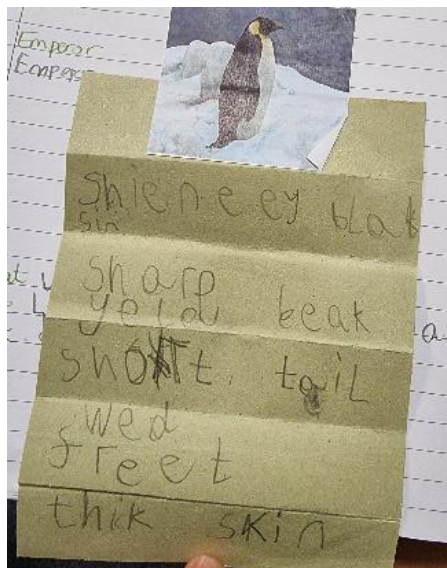 Emperor
Empero
Shieneey blak
sin
sharp
yelow beak
short tail
wed
freet
thik skin